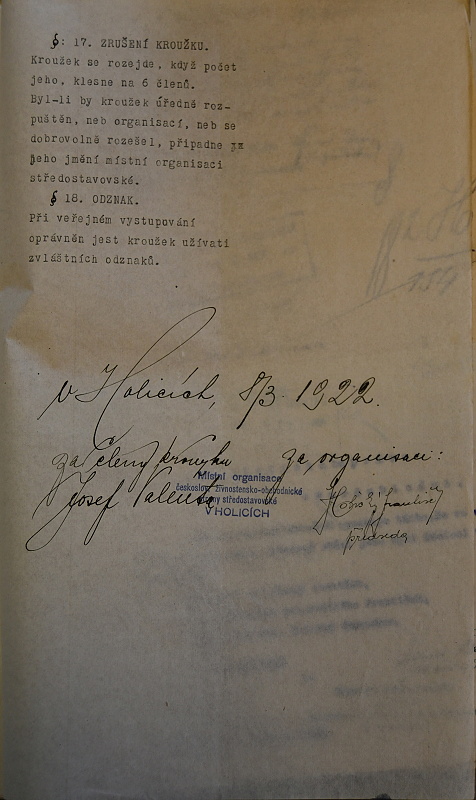 §: 17. ZRUŠENÍ KROUŽKU.
Kroužek se rozejde, když počet
jeho, klesne na 6 členů.
Byl-li by kroužek úředně roz-
puštěn, neb organisací, neb se
dobrovolně rozešel, připadne
jeho jmění místní organisaci
středostavovské.
§ 18. ODZNAK.
Při veřejném vystupování
oprávněn jest kroužek užívati
zvláštních odznaků.
V Holicích, 8/3. 1922.
za členy kroužku za organisaci:
Místní organisace
českoslov. živnostensko-obchodnické
strany středostavovské
V HOLICÍCH
Josef Valenta
předseda